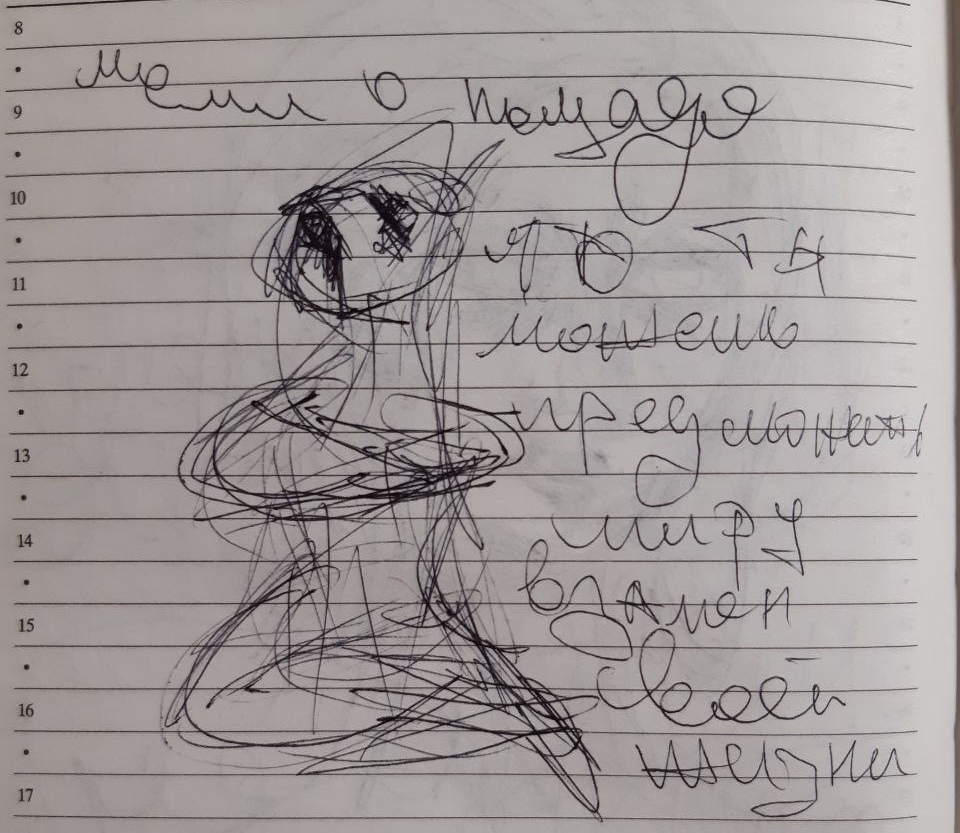 8
Моли о пощаде
9
10
Что ты
11
можешь
12
предложить
13
миру
14
взамен
15
своей
16
жизни
17